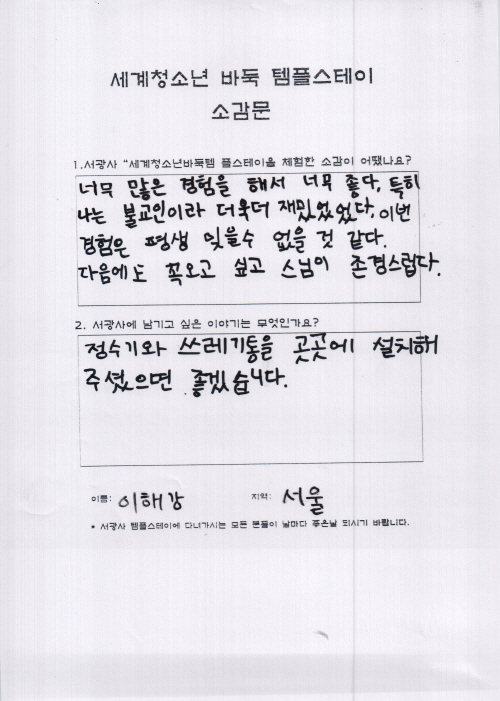 세계청소년 바둑 템플스테이
소감문
1.서광사 "세계청소년바둑템 플스테이을 체험한 소감이 어땠나요?
너무 많은 경험을 해서 너무 좋다, 특히
나는 불교인이라 더욱더 재밌었었다, 이번
경험은 평생 잊을수 없을 것 같다.
다음에도 꼭오고 싶고 스님이 존경스럽다.
2. 서광사에 남기고 싶은 이야기는 무엇인가요?
정수기와 쓰레기통을 곳곳에 설치해
주셨으면 좋겠습니다.
이름: 이해강 지역: 서울
* 서광사 템플스테이에 다녀가시는 모든 분들이 날마다 좋은날 되시기 바랍니다.